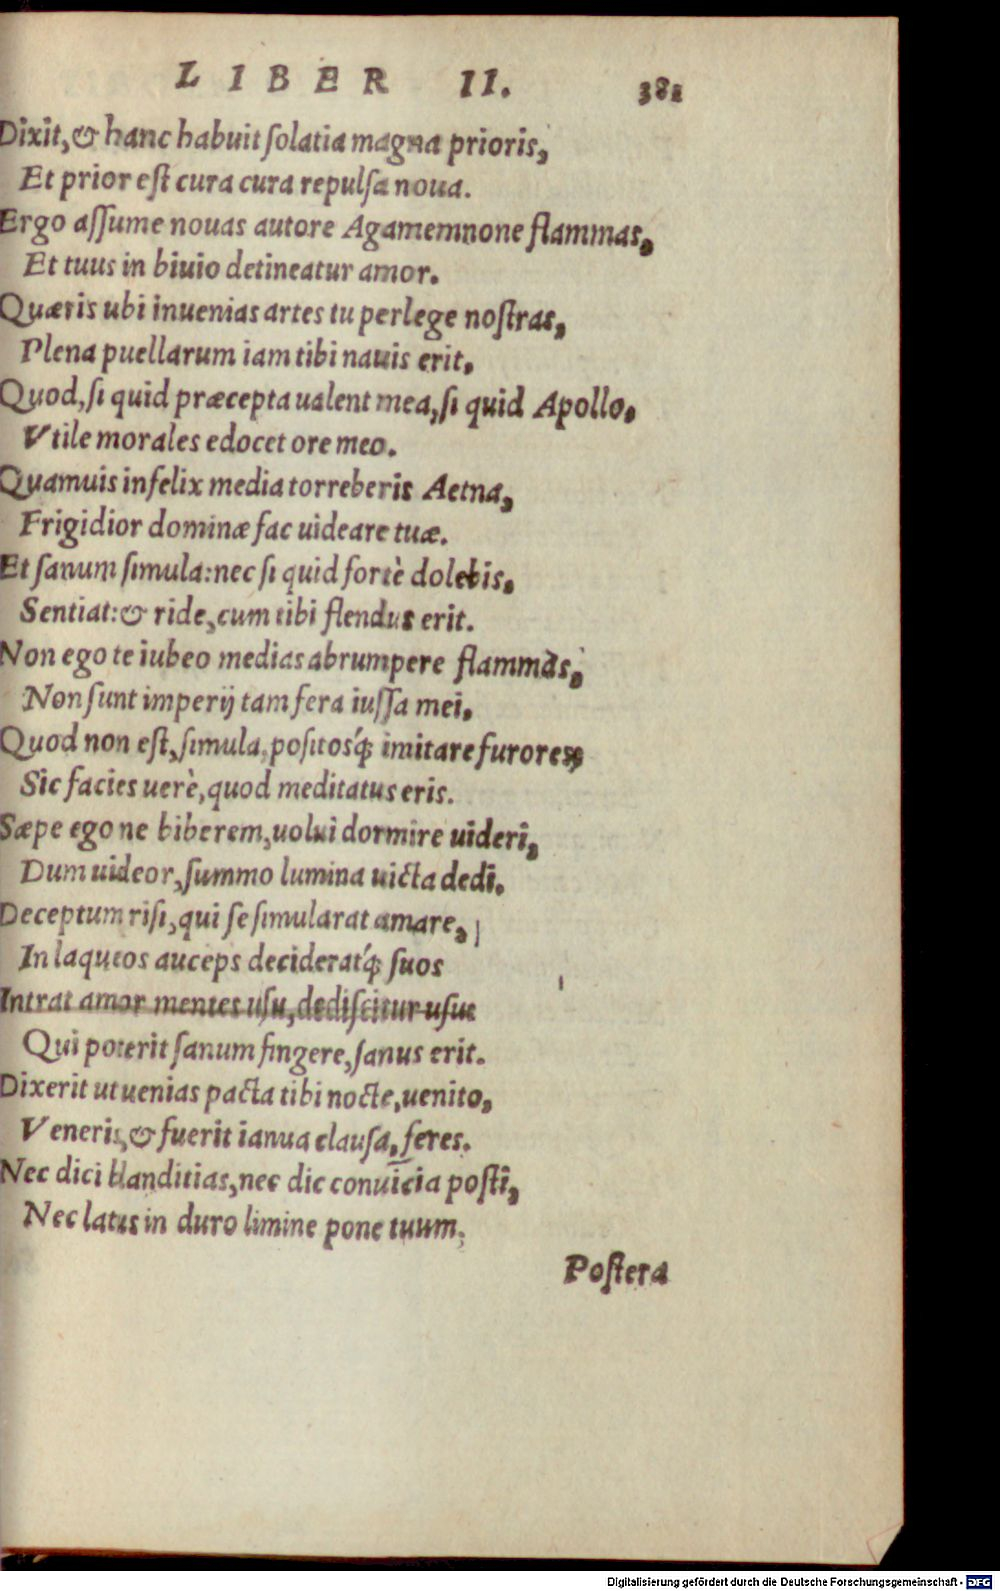 LIBER II. 381
Dixit, & hanc habuit ſolatia magna prioris,
Et prior eſt cura cura repulſa noua.
Ergo aſſume nouas autore Agamemnone flammas,
Et tuus in biuio detineatur amor.
Quæris ubi inuenias artes tu perlege noſtras,
Plena puellarum iam tibi nauis erit.
Quod, ſi quid præcepta ualent mea, ſi quid Apollo,
Vtile morales edocet ore meo.
Quamuis infelix media torreberis Aetna,
Frigidior dominæ fac uideare tuæ.
Et ſanum ſimula: nec ſi quid fortè dolebis,
Sentiat: & ride, cum tibi flendus erit.
Non ego te iubeo medias abrumpere flammas,
Non ſunt imperij tam fera iuſſa mei.
Quod non eſt, ſimula, poſitosq́; imitare furores,
Sic facies uerè, quod meditatus eris.
Sæpe ego ne biberem, uolui dormire uideri,
Dum uideor, ſummo lumina uicta dedi.
Deceptum riſi, qui ſe ſimularat amare,
In laqueos auceps decideratq́; ſuos
Intrat amor mentes uſu, dediſcitur uſu:
Qui poterit ſanum fingere, ſanus erit.
Dixerit ut uenias pacta tibi nocte, uenito,
Veneris, & fuerit ianua clauſa, feres.
Nec dici blanditias, nec dic conuicia poſti,
Nec latus in duro limine pone tuum.
Poſtera
Digitalisierung gefördert durch die Deutsche Forschungsgemeinschaft - DFG